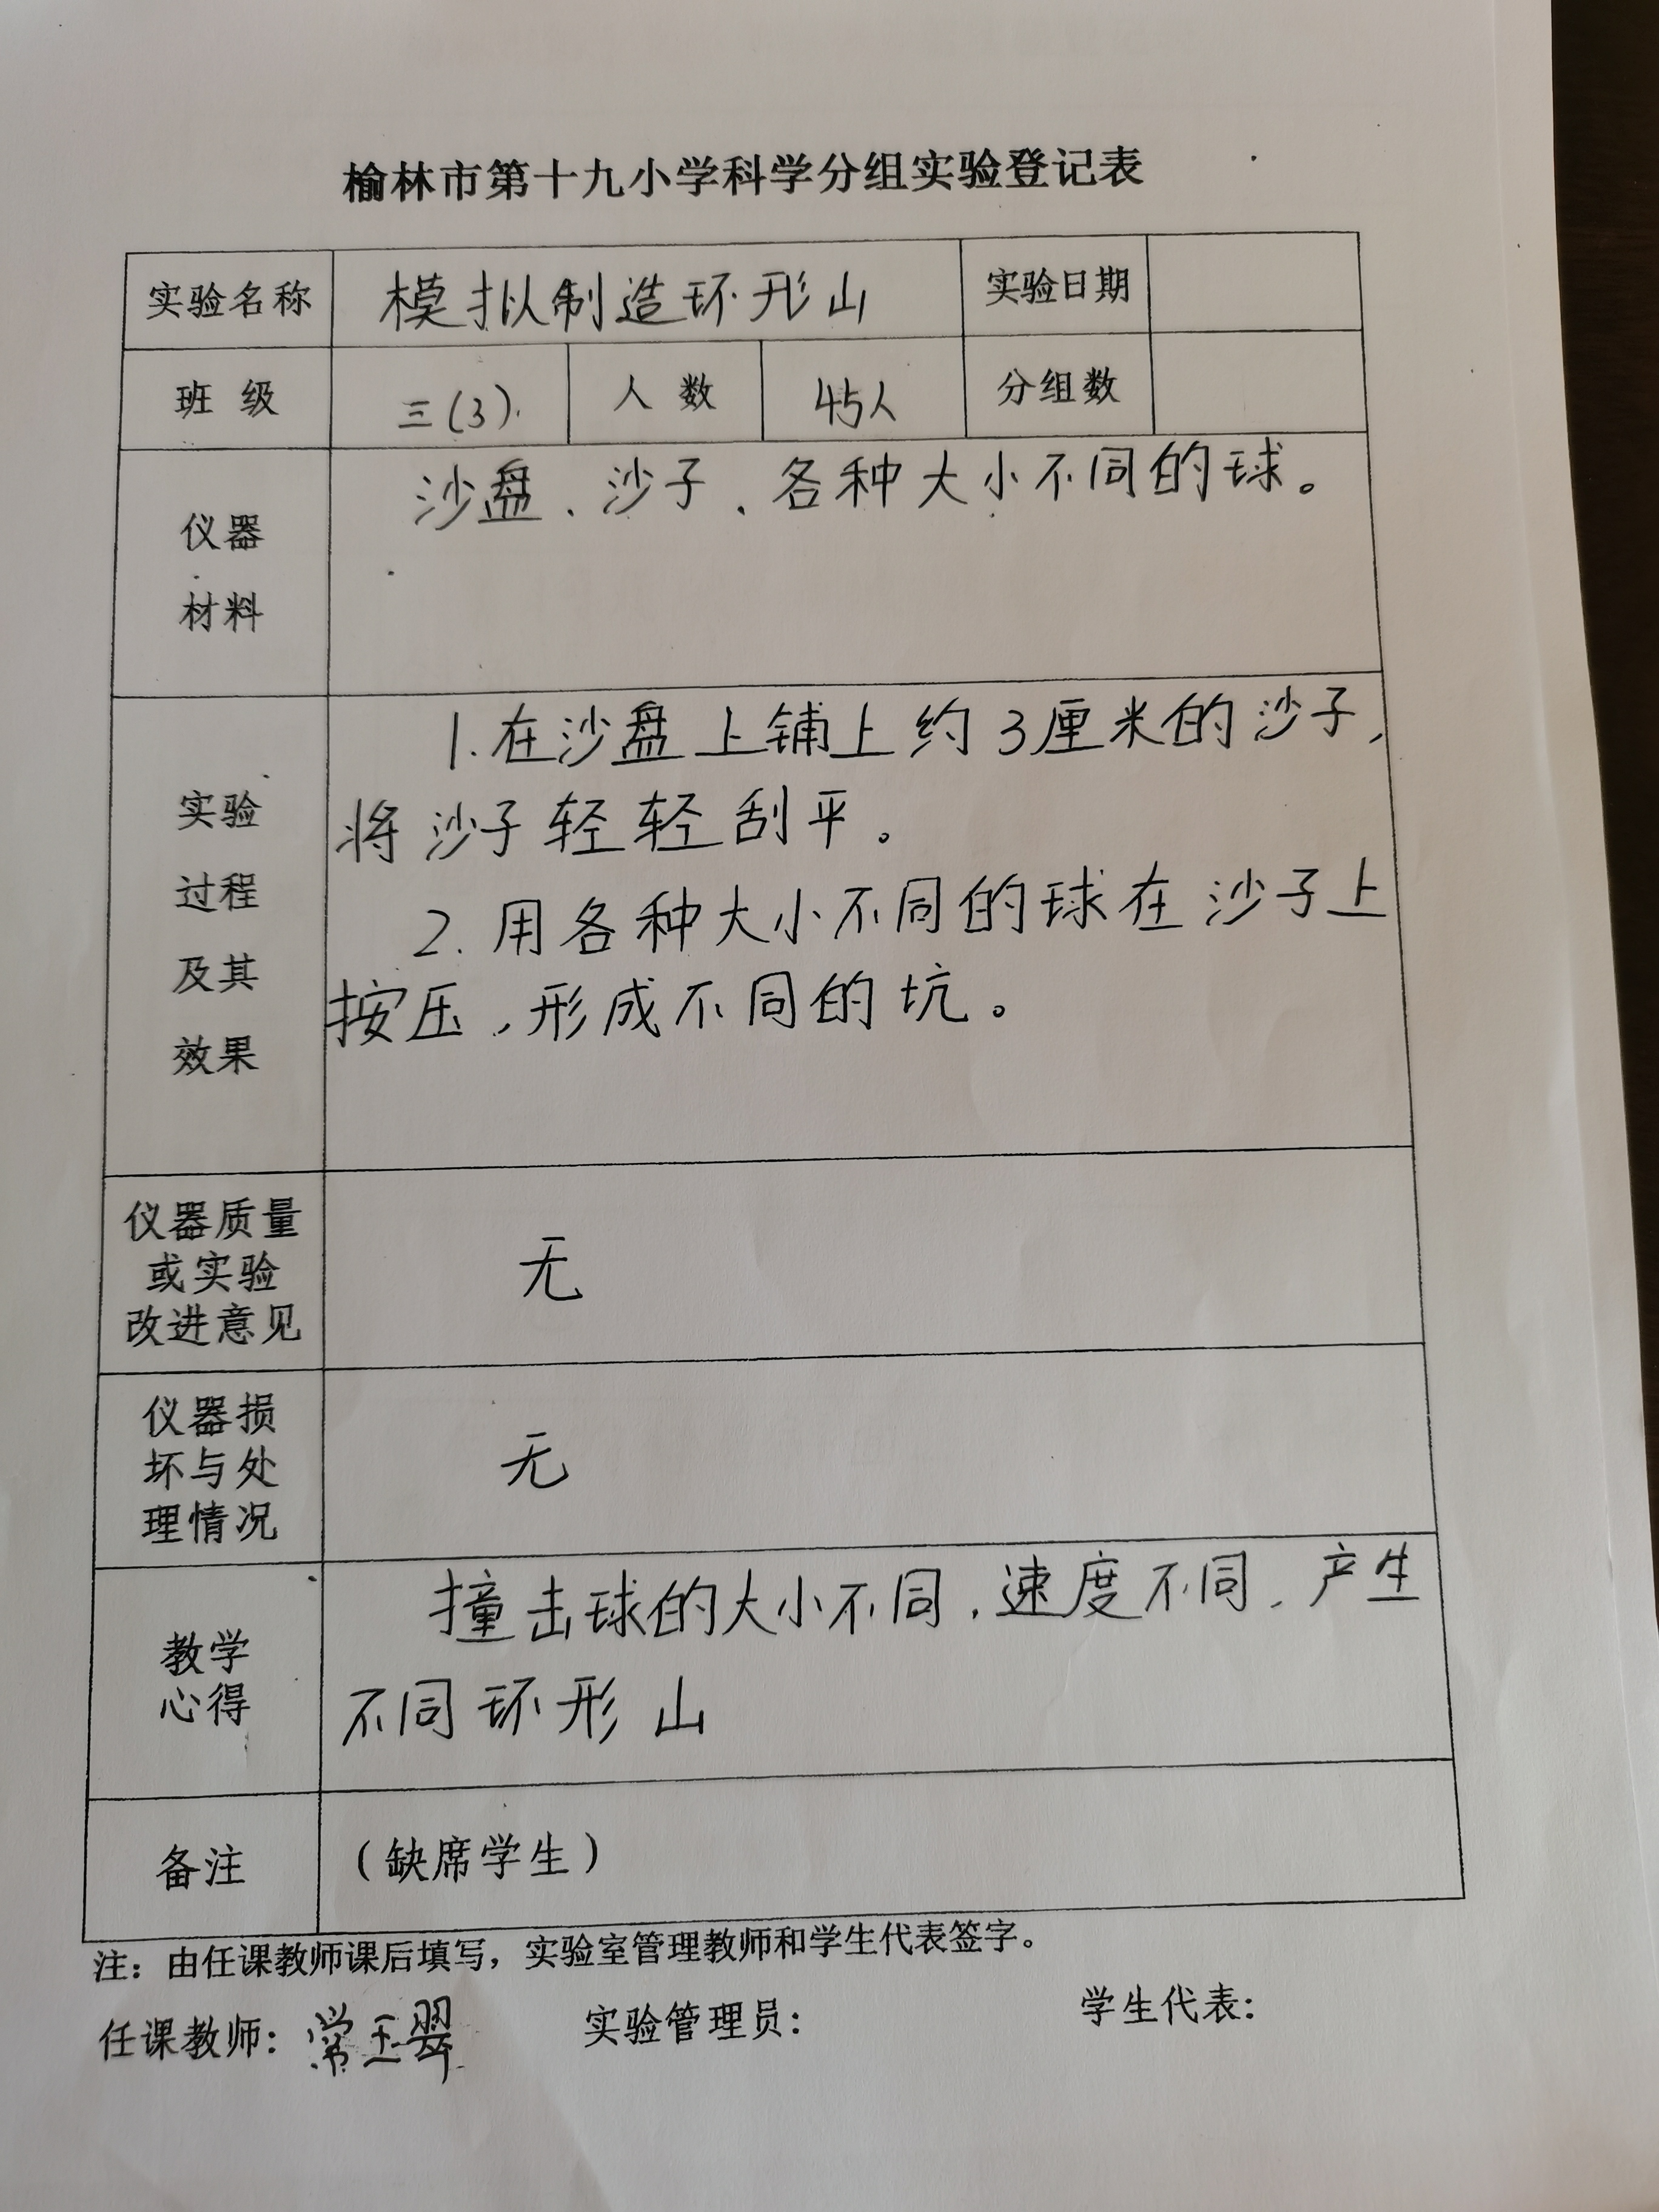 榆林市第十九小学科学分组实验登记表
实验名称 模拟制造环形山 实验日期
班 级 三(3). 人 数 45人 分组数
仪器
材料
沙盘、沙子、各种大小不同的球。
实验
过程
及其
效果
1.在沙盘上铺上约3厘米的沙子,
将沙子轻轻刮平。
2.用各种大小不同的球在沙子上
按压,形成不同的坑。
仪器质量
或实验
改进意见
无
仪器损
坏与处
理情况
无
教学
心得
撞击球的大小不同,速度不同,产生
不同环形山
备注 (缺席学生)
注：由任课教师课后填写，实验室管理教师和学生代表签字。
任课教师: 常玉翠 实验管理员: 学生代表: